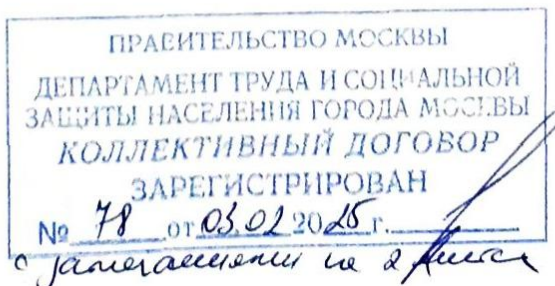 ПРАВИТЕЛЬСТВО МОСКВЫ
ДЕПАРТАМЕНТ ТРУДА И СОЦИАЛЬНОЙ
ЗАЩИТЫ НАСЕЛЕНИЯ ГОРОДА МОСКВЫ
КОЛЛЕКТИВНЫЙ ДОГОВОР
ЗАРЕГИСТРИРОВАН
№ 78 от 03.02 2025 г.
с замечаниями на 2 листах